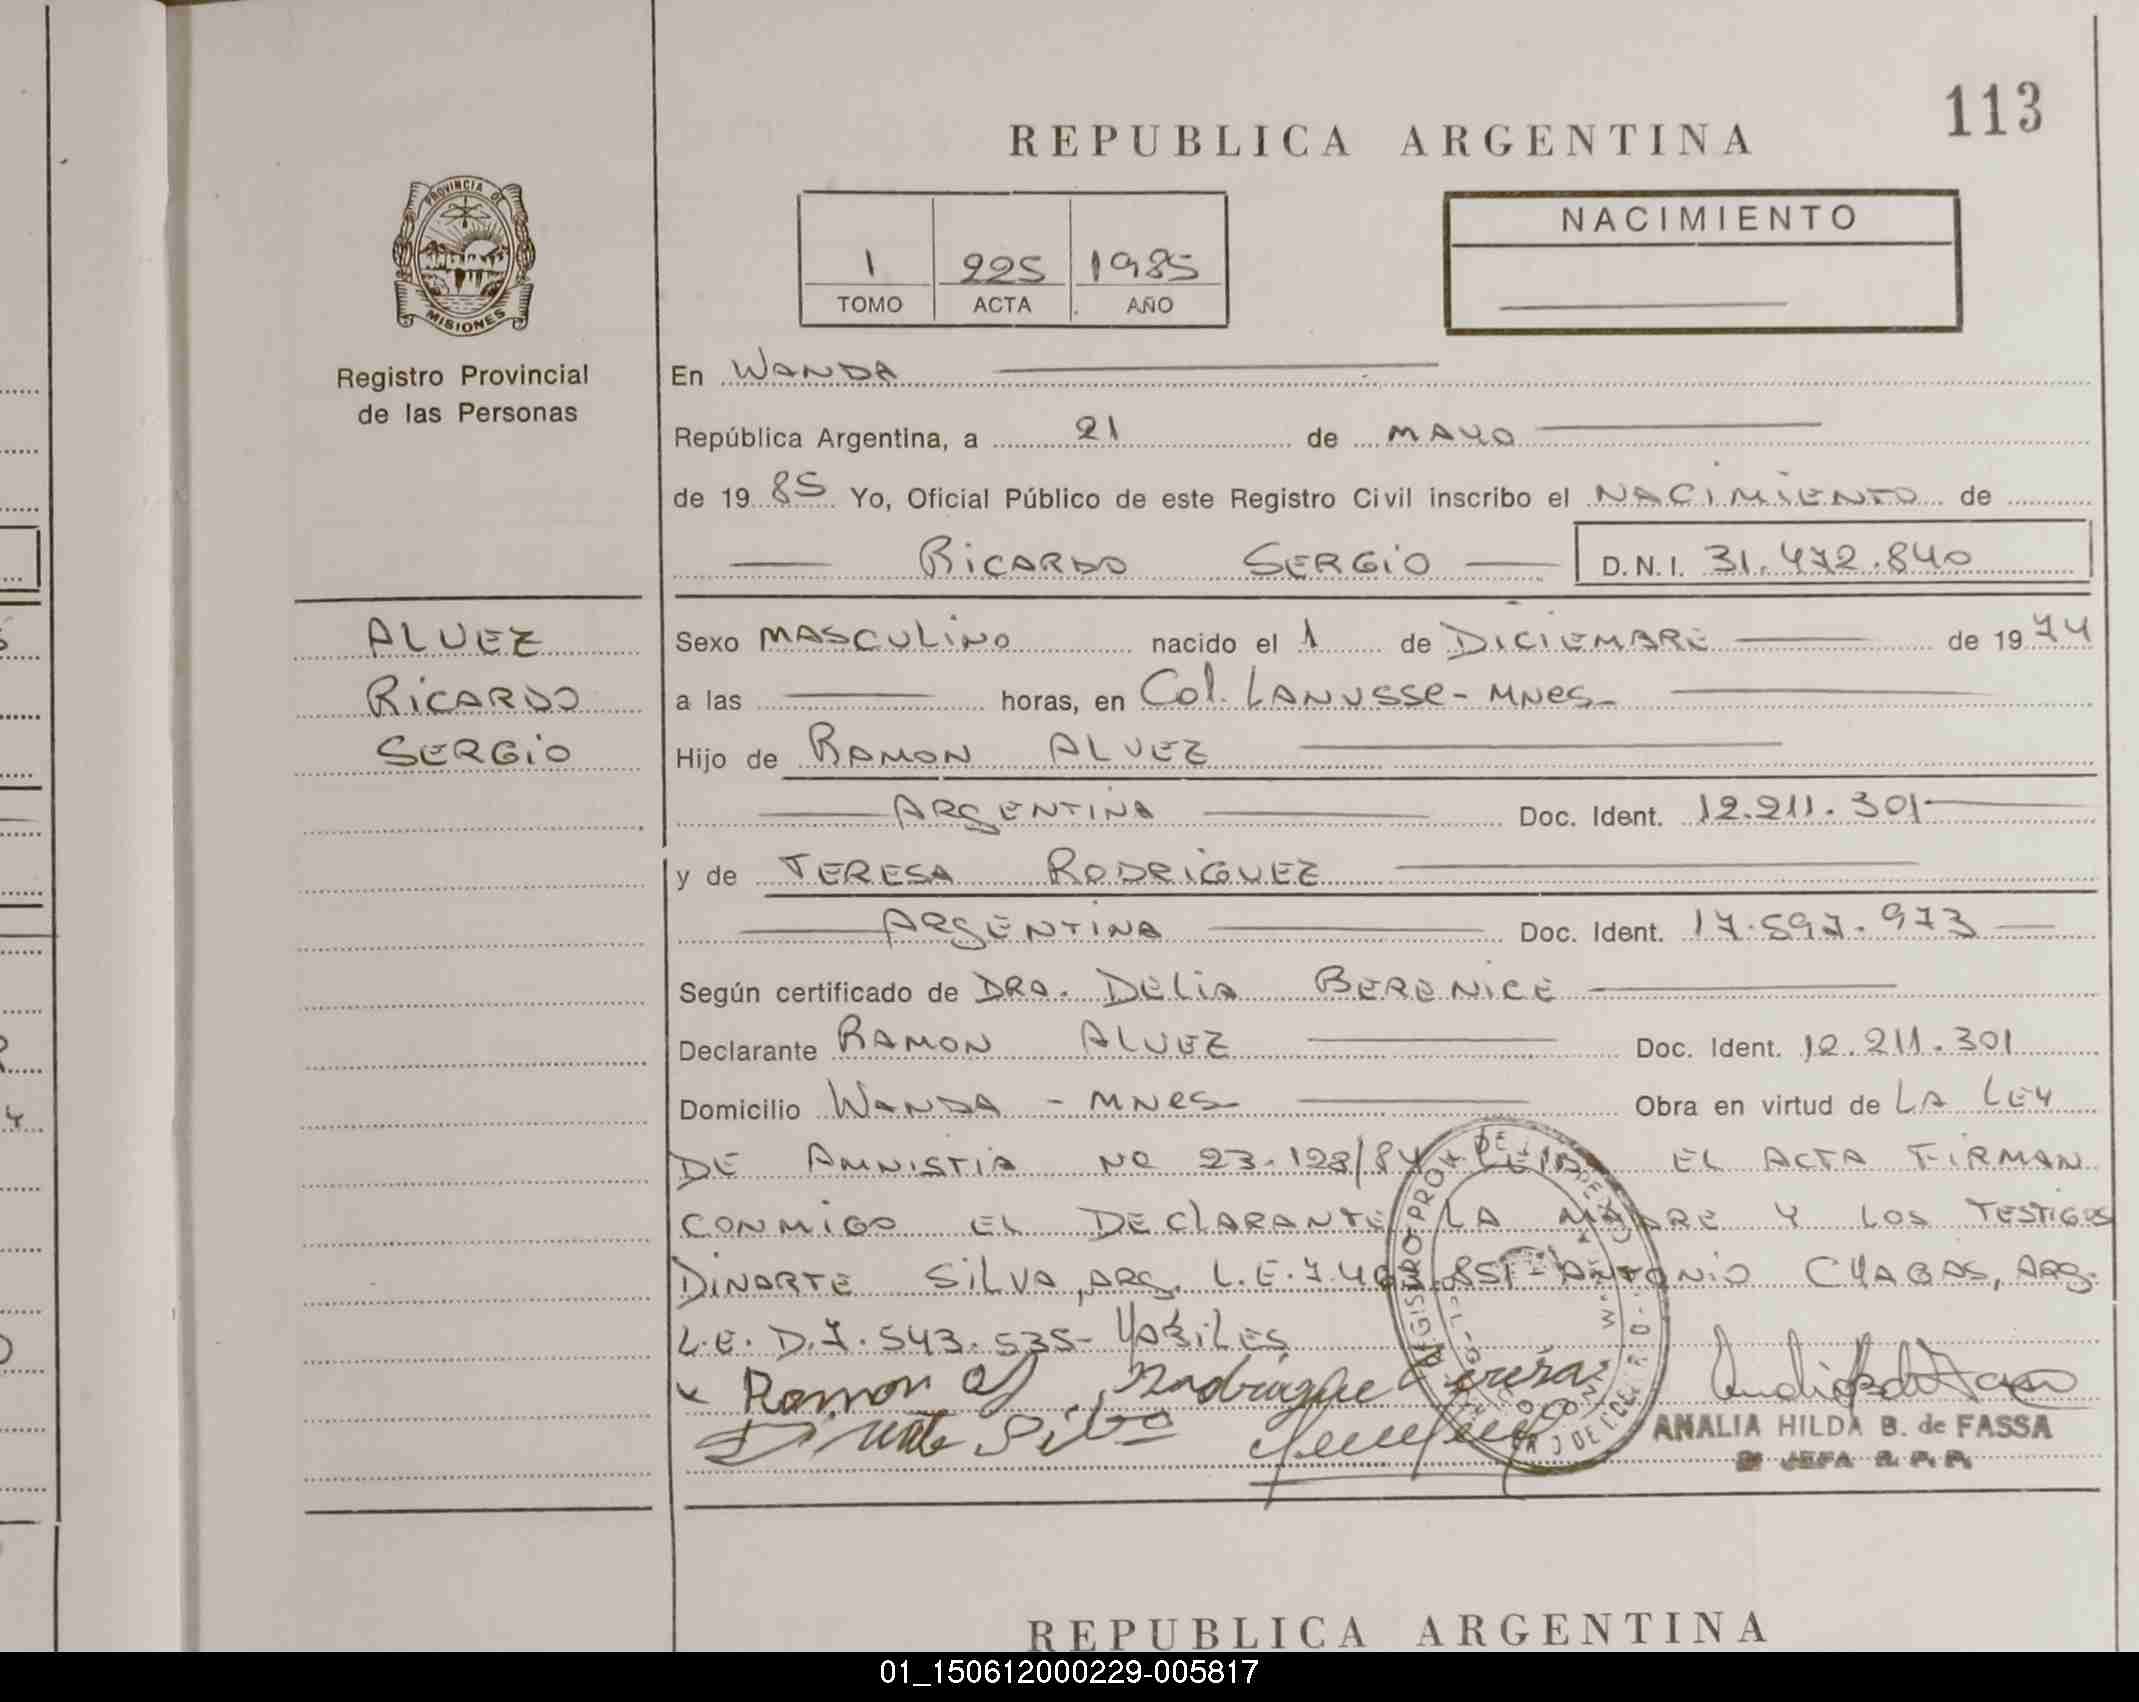 113
REPUBLICA ARGENTINA
PROVINCIA DE
MISIONES
Registro Provincial
de las Personas
1 225 1985
TOMO ACTA AÑO
NACIMIENTO
En WANDA
República Argentina, a 21 de MAYO
de 1985 Yo, Oficial Público de este Registro Civil inscribo el NACIMIENTO de
RICARDO SERGIO D.N.I. 31.472.840
ALVEZ
RICARDO
SERGIO
Sexo MASCULINO nacido el 1 de DICIEMBRE de 1974
a las horas, en Col. LANUSSE - MNES-
Hijo de RAMON ALVEZ
ARGENTINA Doc. Ident. 12.211.301
y de TERESA RODRIGUEZ
ARGENTINA Doc. Ident. 17.597.973
Según certificado de DRA. DELIA BERENICE
Declarante RAMON ALVEZ Doc. Ident. 12.211.301
Domicilio WANDA - MNES- Obra en virtud de LA LEY
DE AMNISTIA Nº 23.128/84 LEIDA EL ACTA FIRMAN
CONMIGO EL DECLARANTE LA MADRE Y LOS TESTIGOS
DINARTE SILVA, ARG. L.E. 7.403.851- ANTONIO CHAGAS, ARG.
L.E. D.7.543.535- HABILES
Ramon Al Rodrigue
Dinarte Silva
ANALIA HILDA B. de FASSA
JEFA R.P.P.
REPUBLICA ARGENTINA
01_150612000229-005817